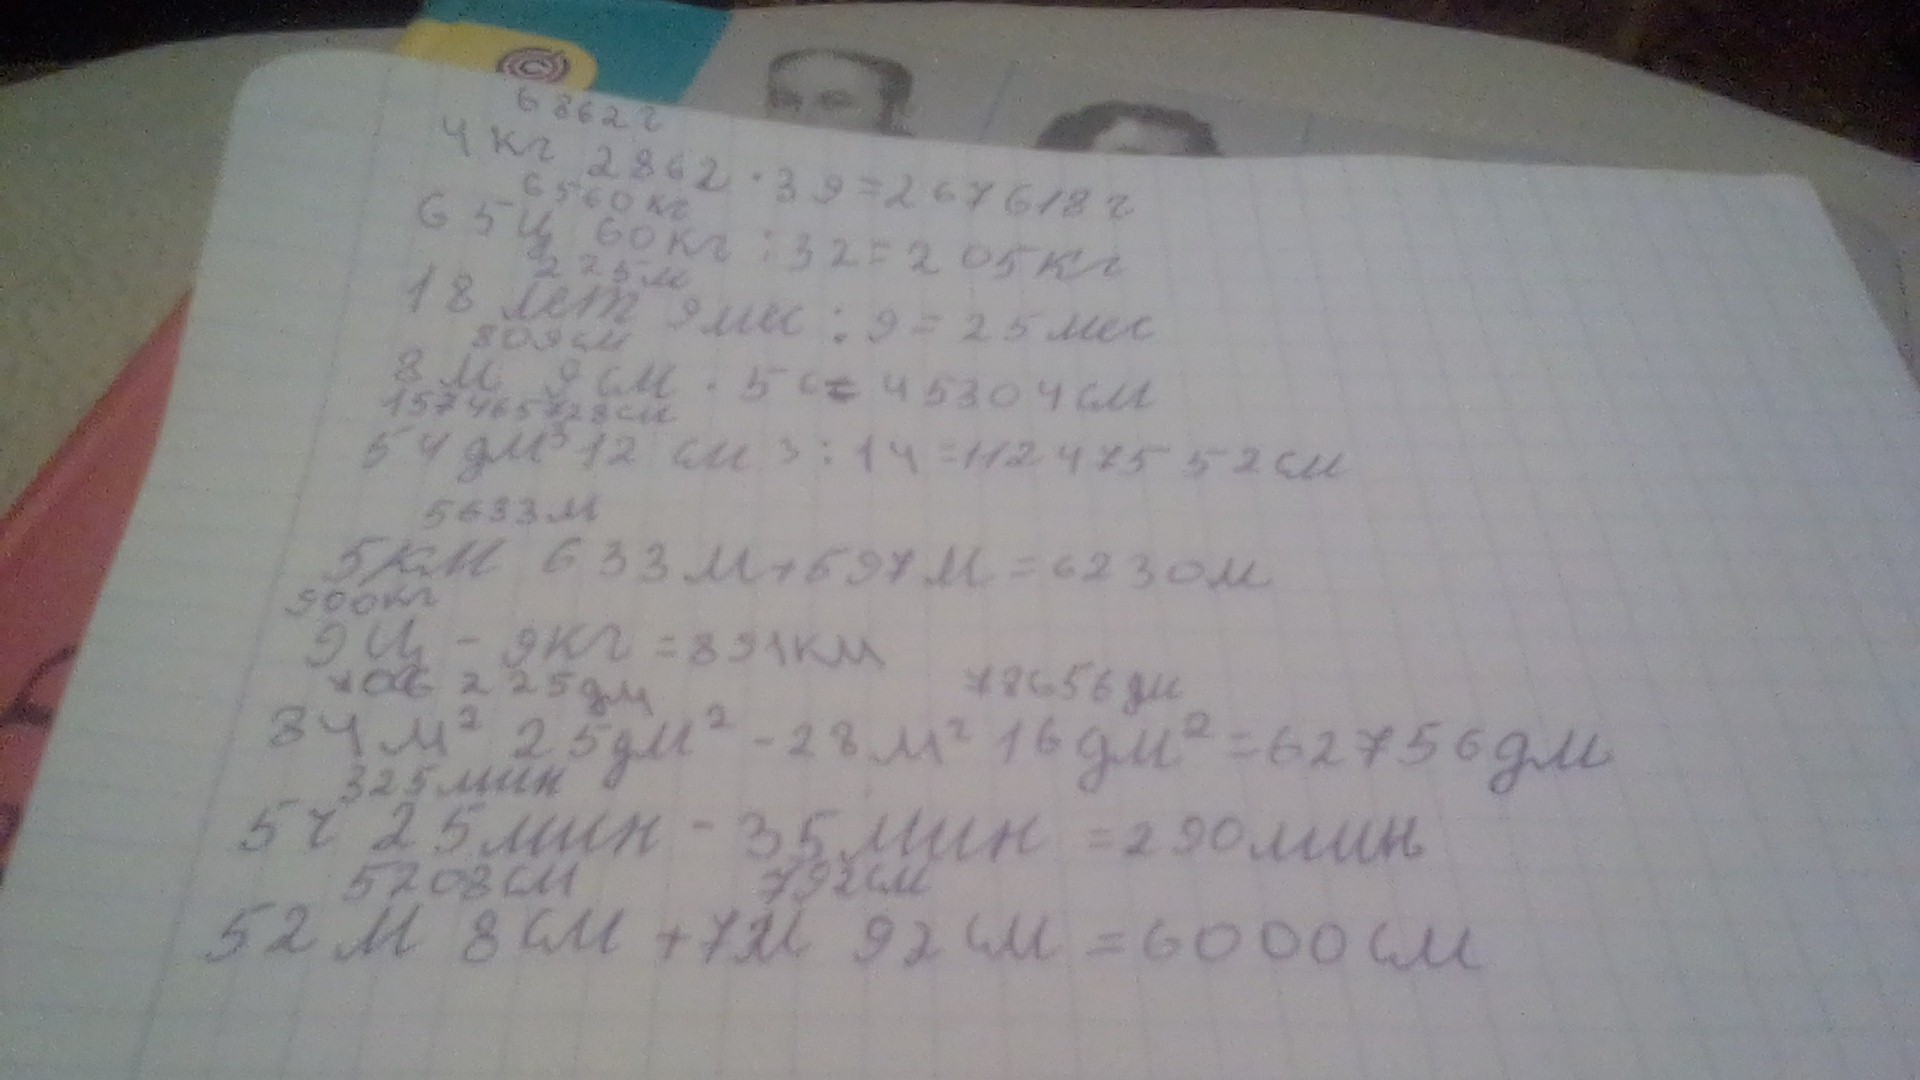 6862г
4кг 2862 · 39 = 267618г
6560кг
65ц 60кг : 32 = 205кг
225м
18 лет 9мес : 9 = 25мес
809см
8м 9см · 56 = 45304см
157465728см
54дм³ 12 см³ : 14 = 11247552см
5633м
5км 633м + 597м = 6230м
900кг
9ц - 9кг = 891км
706225дм 78656дм
84м² 25дм² - 28м² 16дм² = 62756дм
325мин
5ч 25мин - 35мин = 290мин
5208см 792см
52м 8см + 7м 92см = 6000см